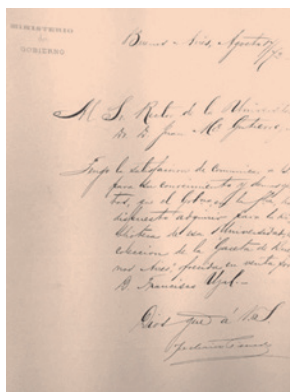 MINISTERIO
DE
GOBIERNO
Buenos Aires, Agosto
Al Sr. Rector de la Universidad
Dr. D. Juan Ma. Gutierrez
Tengo la satisfaccion de comunicar a
para su conocimiento y demas
que el Gobierno de la Pcia.
dispuesto adquirir para la Bi-
blioteca de esa Universidad, la
coleccion de la Gaceta de Bue-
nos Aires, ofrecida en venta por
D. Francisco
Dios gue. á V.S.